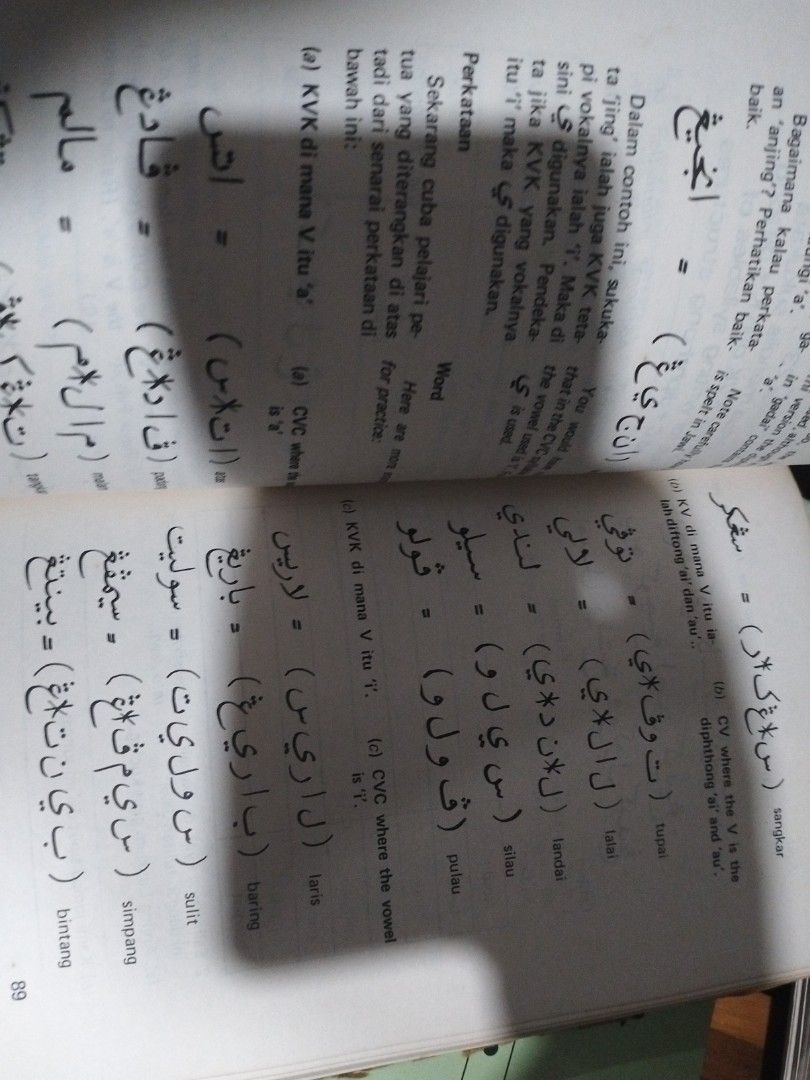 ungi 'a'.
Bagaimana kalau perkata-
an 'anjing'? Perhatikan baik-
baik.
Note carefully
is spelt in Jawi.
انجيڠ = (ا ن ج ي ڠ
Dalam contoh ini, sukuka-
ta 'jing' ialah juga KVK teta-
pi vokalnya ialah 'i'. Maka di
sini ي digunakan. Pendeka-
ta jika KVK yang vokalnya
itu 'i' maka ي digunakan.
You would
that in the CVC
the vowel used is
ي is used.
Perkataan
Word
Sekarang cuba pelajari pe-
tua yang diterangkan di atas
tadi dari senarai perkataan di
bawah ini:
Here are more
for practice:
(a) KVK di mana V itu 'a'
(a) CVC where the
is 'a'
اتس = (ا ت * س)
ڤادڠ = (ڤ ا د * ڠ)
مالم = (م ا ل * م)
(ت * ڠ ک
سڠکر = (س * ڠ ک * ر) sangkar
(b) KV di mana V itu ia-
lah diftong 'ai' dan 'au'..
(b) CV where the V is the
diphthong 'ai' and 'au'.
توڤي = (ت و ڤ * ي) tupai
لالي = (ل ا ل * ي) lalai
لندي = (ل * ن د * ي) landai
سيلو = (س ي ل و) silau
ڤولو = (ڤ و ل و) pulau
(c) KVK di mana V itu 'i'.
(c) CVC where the vowel
is 'i'.
لاريس = (ل ا ر ي س) laris
باريڠ = (ب ا ر ي ڠ) baring
سوليت = (س و ل ي ت) sulit
سيمڤڠ = (س ي م ڤ * ڠ) simpang
بينتڠ = (ب ي ن ت * ڠ) bintang
89